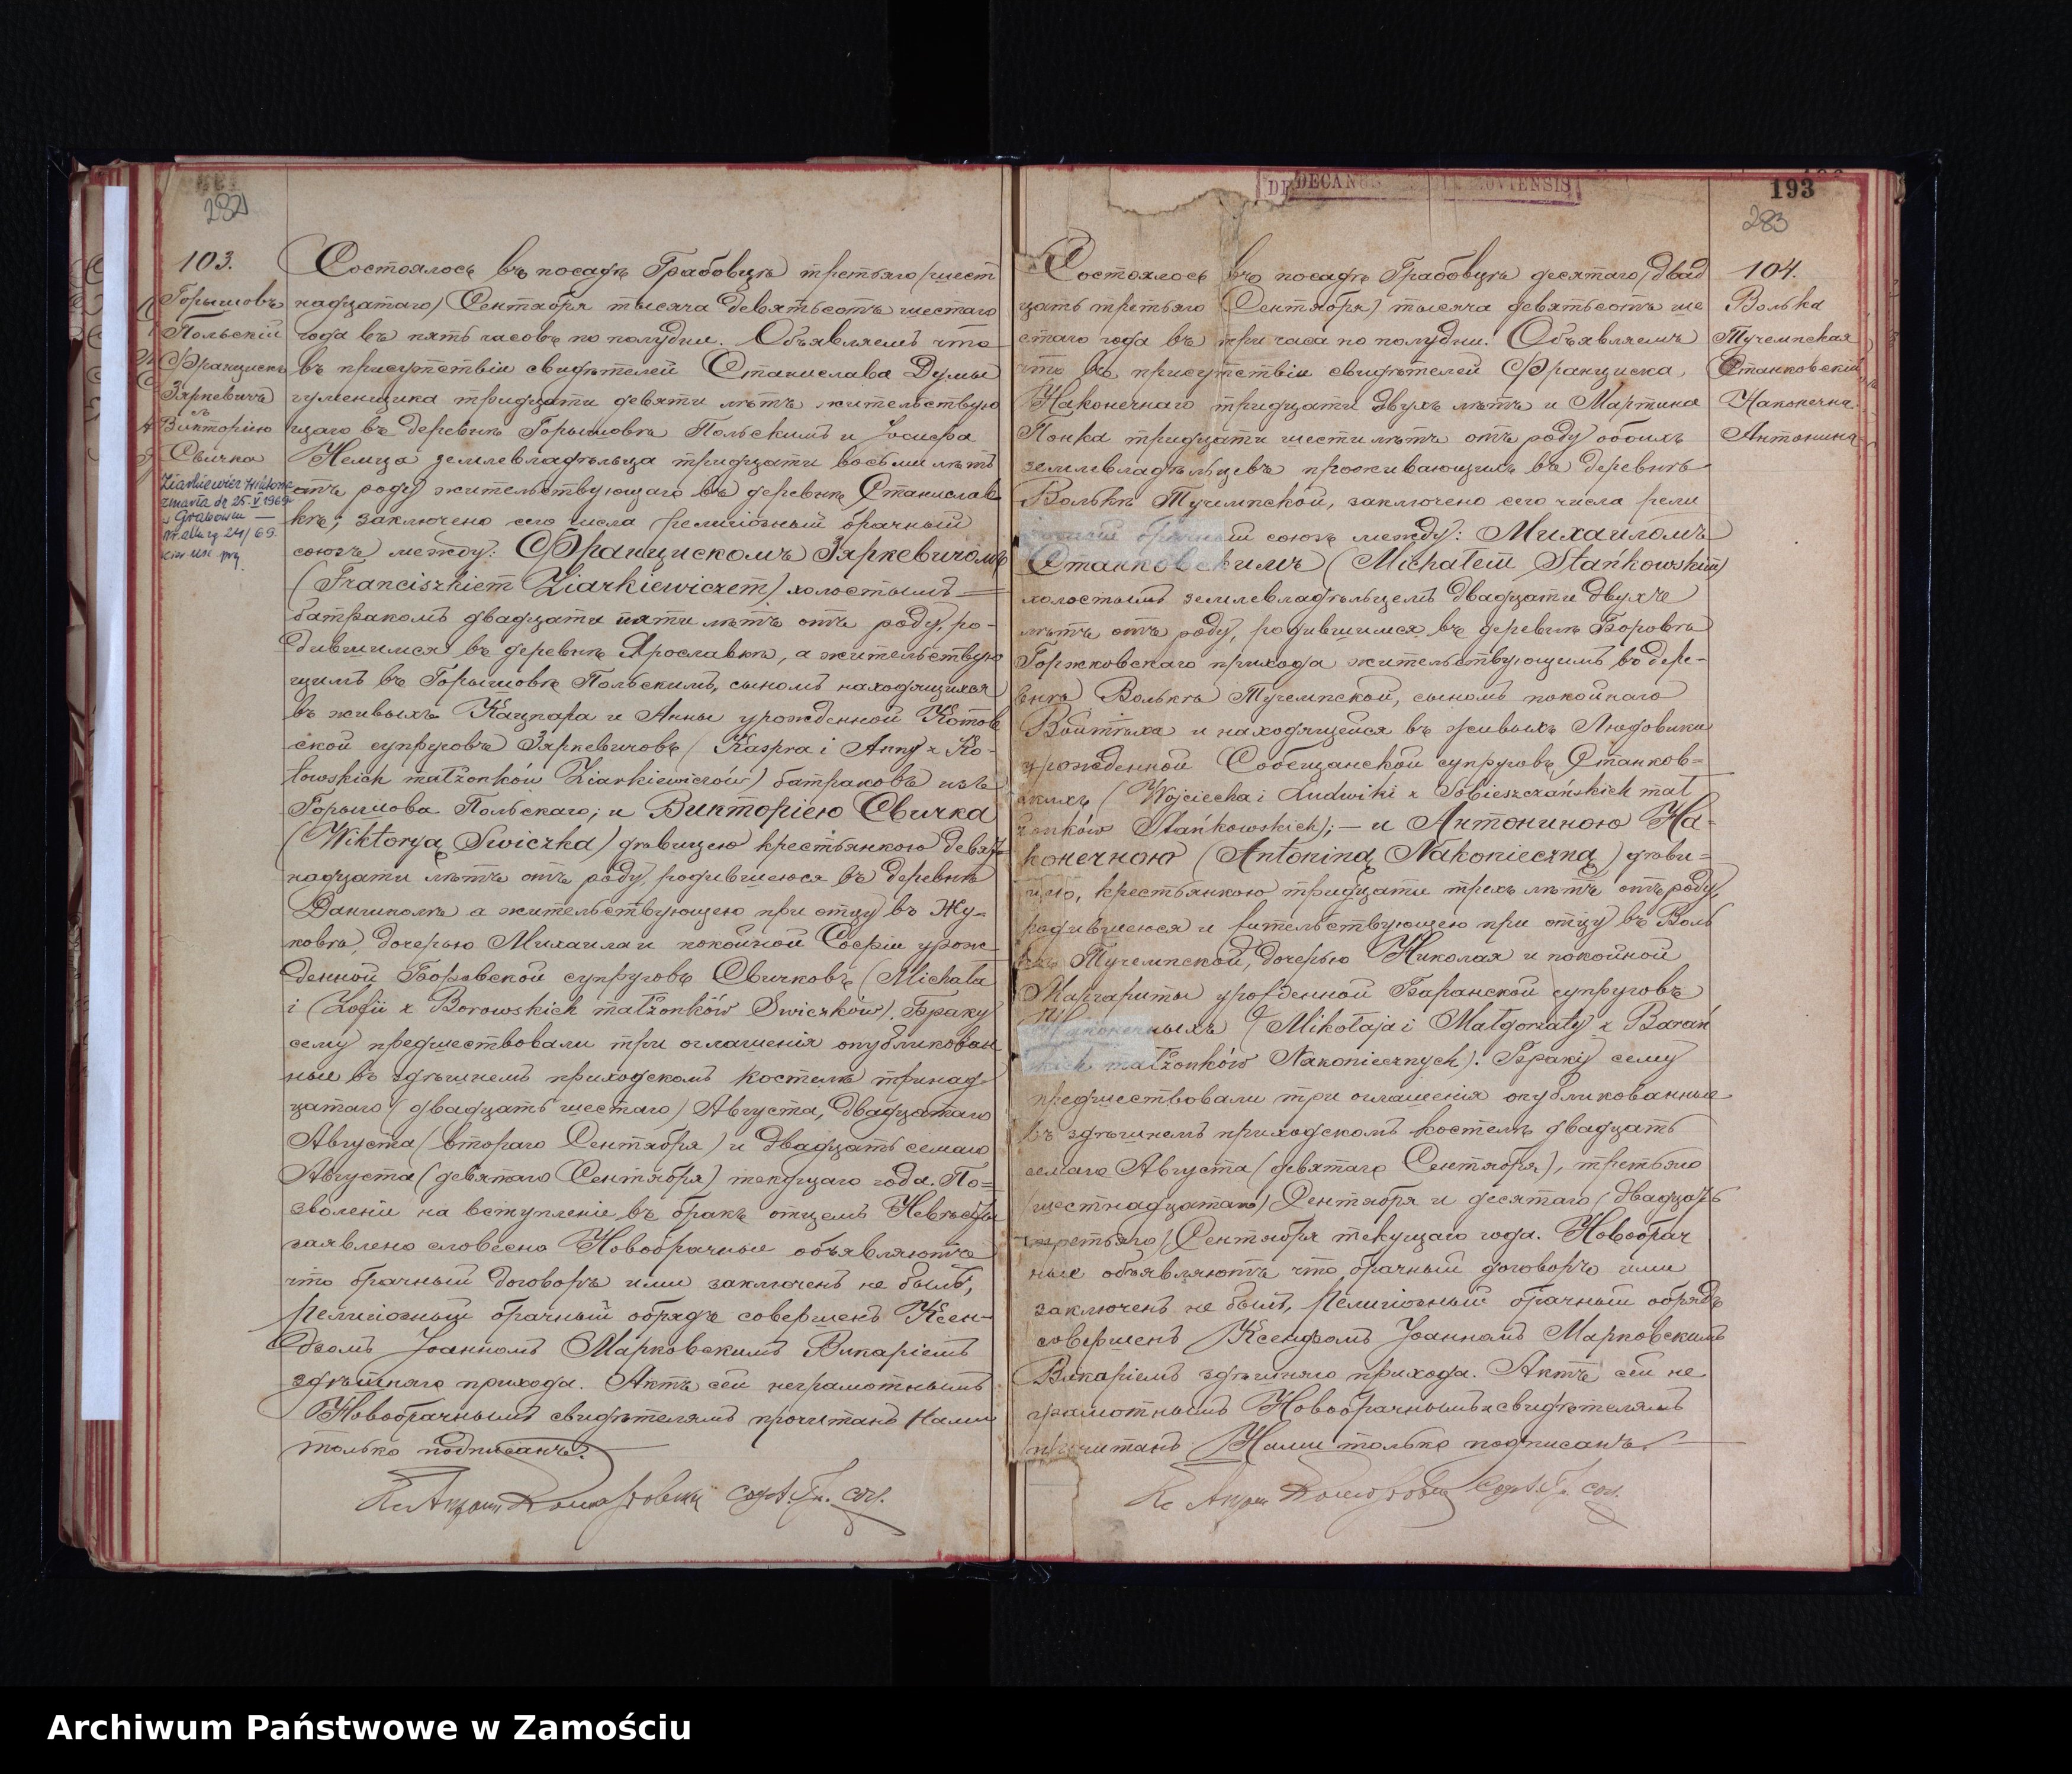 282
103.
Горышовъ
Польскій
Францискъ
Зяркевичъ
съ
Викторіею
Свичка
zmarła dn 25.V.1969
w Grabowcu —
Nr aktu zg. 24/69.
Состоялось въ посадѣ Грабовцѣ третьяго (шест
надцатаго) Сентября тысяча девятьсотъ шестаго
года въ пять часовъ по полудни. Объявляемъ что
въ присутствіи свидѣтелей Станислава Думы
гуменщика тридцати девяти лѣтъ жительствую
щаго въ деревнѣ Горышовѣ Польскимъ и Іосифа
Немца землевладѣльца тридцати восьми лѣтъ
отъ роду жительствующаго въ деревнѣ Станислав
кѣ, заключено сего числа религіозный брачный
союзъ между: Францискомъ Зяркевичомъ
(Franciszkiem Ziarkiewiczem) холостымъ
батракомъ двадцати пяти лѣтъ отъ роду, ро-
дившимся въ деревнѣ Ярославкѣ, а жительствую
щимъ въ Горышовѣ Польскимъ, сыномъ находящихся
въ живыхъ Кацпара и Анны урожденной Котов
ской супруговъ Зяркевичовъ (Kaspra i Anny z Ko-
towskich małżonków Ziarkiewiczów) батраковъ изъ
Горышова Польскаго; и Викторіею Свичка
(Wiktoryą Swiczka) дѣвицею крестьянкою девят
надцати лѣтъ отъ роду, родившеюся въ деревнѣ
а жительствующею при отцу въ Жу-
ковѣ, дочерью Михаила и покойной Софіи урож
денной Боровской супруговъ Свичковъ (Michała
i Zofii z Borowskich małżonków Swiczków). Браку
сему предшествовали три оглашенія опубликован
ные въ здѣшнемъ приходскомъ костелѣ тринад
цатаго (двадцать шестаго) Августа, двадцатаго
Августа (втораго Сентября) и двадцать семаго
Августа (девятаго Сентября) текущаго года. По=
зволеніе на вступленіе въ бракъ отцемъ Невѣсты
заявлено словесно Новобрачные объявляютъ
что брачный договоръ ими заключенъ не былъ,
Религіозный брачный обрядъ совершенъ Ксен-
дзомъ Іоанномъ Марковскимъ Викаріемъ
здѣшняго прихода. Актъ сей неграмотнымъ
Новобрачнымъ свидѣтелямъ прочитанъ Нами
только подписанъ.
DECANUS
193
283
104.
Волька
Тучемпская
Станковскій
Наконечна
Антонина
Состоялось въ посадѣ Грабовцѣ десятаго (двад
цать третьяго Сентября) тысяча девятьсотъ ше
стаго года въ три часа по полудни. Объявляемъ
что въ присутствіи свидѣтелей Франциска
Наконечнаго тридцати двухъ лѣтъ и Мартина
Попка тридцати шести лѣтъ отъ роду обоихъ
землевладѣльцевъ проживающихъ въ деревнѣ
Волькѣ Тучемпской, заключено сего числа рели
гіозный брачный союзъ между: Михаиломъ
Станковскимъ (Michałem Stańkowskim)
холостымъ землевладѣльцемъ двадцати двухъ
лѣтъ отъ роду, родившимся въ деревнѣ Боровкѣ
Горжковскаго прихода жительствующимъ въ дере-
внѣ Волькѣ Тучемпской, сыномъ покойнаго
Войтѣха и находящейся въ живыхъ Людовики
урожденной Собещанской супруговъ Станков=
скихъ (Wojciecha i Ludwiki z Sobieszczańskich mał
żonków Stańkowskich); — и Антониною На-
конечною (Antoniną Nakonieczną) дѣви=
цею, крестьянкою тридцати трехъ лѣтъ отъ роду,
родившеюся и жительствующею при отцу въ Воль
кѣ Тучемпской, дочерью Николая и покойной
Маргариты урожденной Баранской супруговъ
Наконечныхъ (Mikołaja i Małgorzaty z Barań
skich małżonków Nakoniecznych). Браку сему
предшествовали три оглашенія опубликованные
въ здѣшнемъ приходскомъ костелѣ двадцать
семаго Августа (девятаго Сентября), третьяго
(шестнадцатаго) Сентября и десятаго (двадцать
третьяго) Сентября текущаго года. Новобрач
ные объявляютъ что брачный договоръ ими
заключенъ не былъ, Религіозный брачный обрядъ
совершенъ Ксендзомъ Іоанномъ Марковскимъ
Викаріемъ здѣшняго прихода. Актъ сей не
грамотнымъ Новобрачнымъ и свидѣтелямъ
прочитанъ Нами только подписанъ.
Archiwum Państwowe w Zamościu